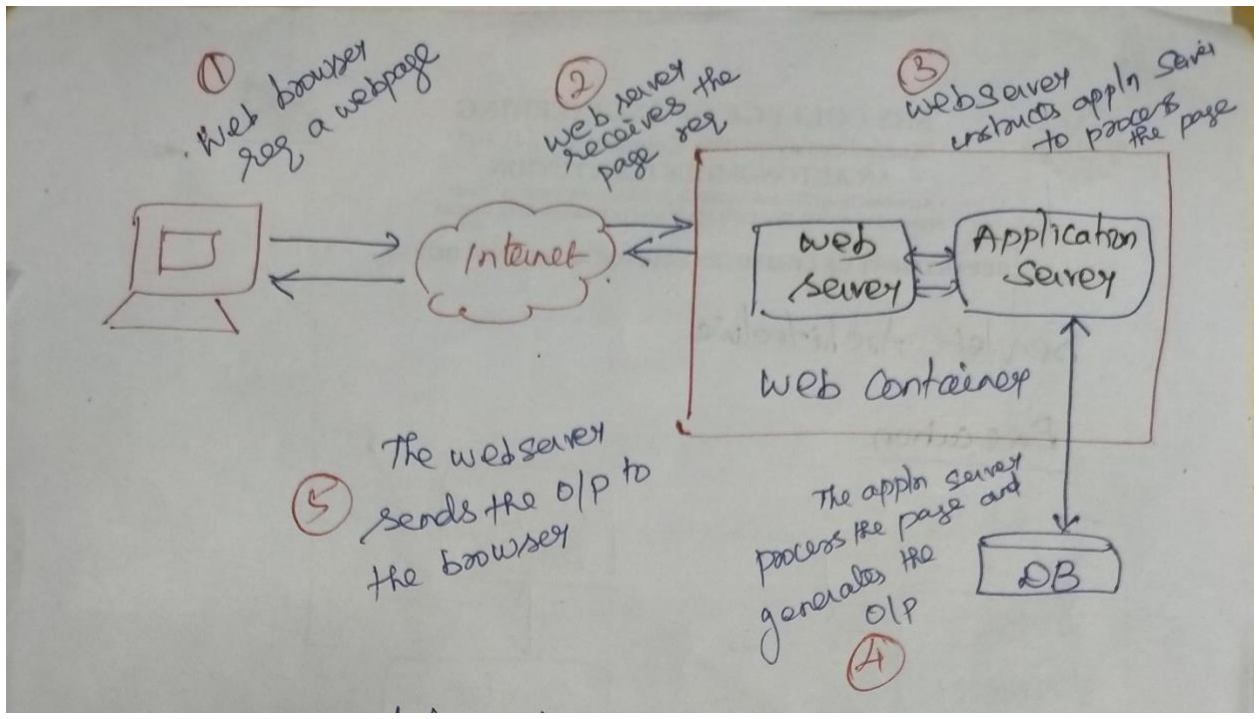 ①
Web browser
req a webpage
②
web server
receives the
page req
③
webserver
instructs appln server
to process
the page
Internet
web
server
Application
Server
web container
The webserver
⑤ sends the O/P to
the browser
The appln server
process the page and
generates the
O/P
④
DB